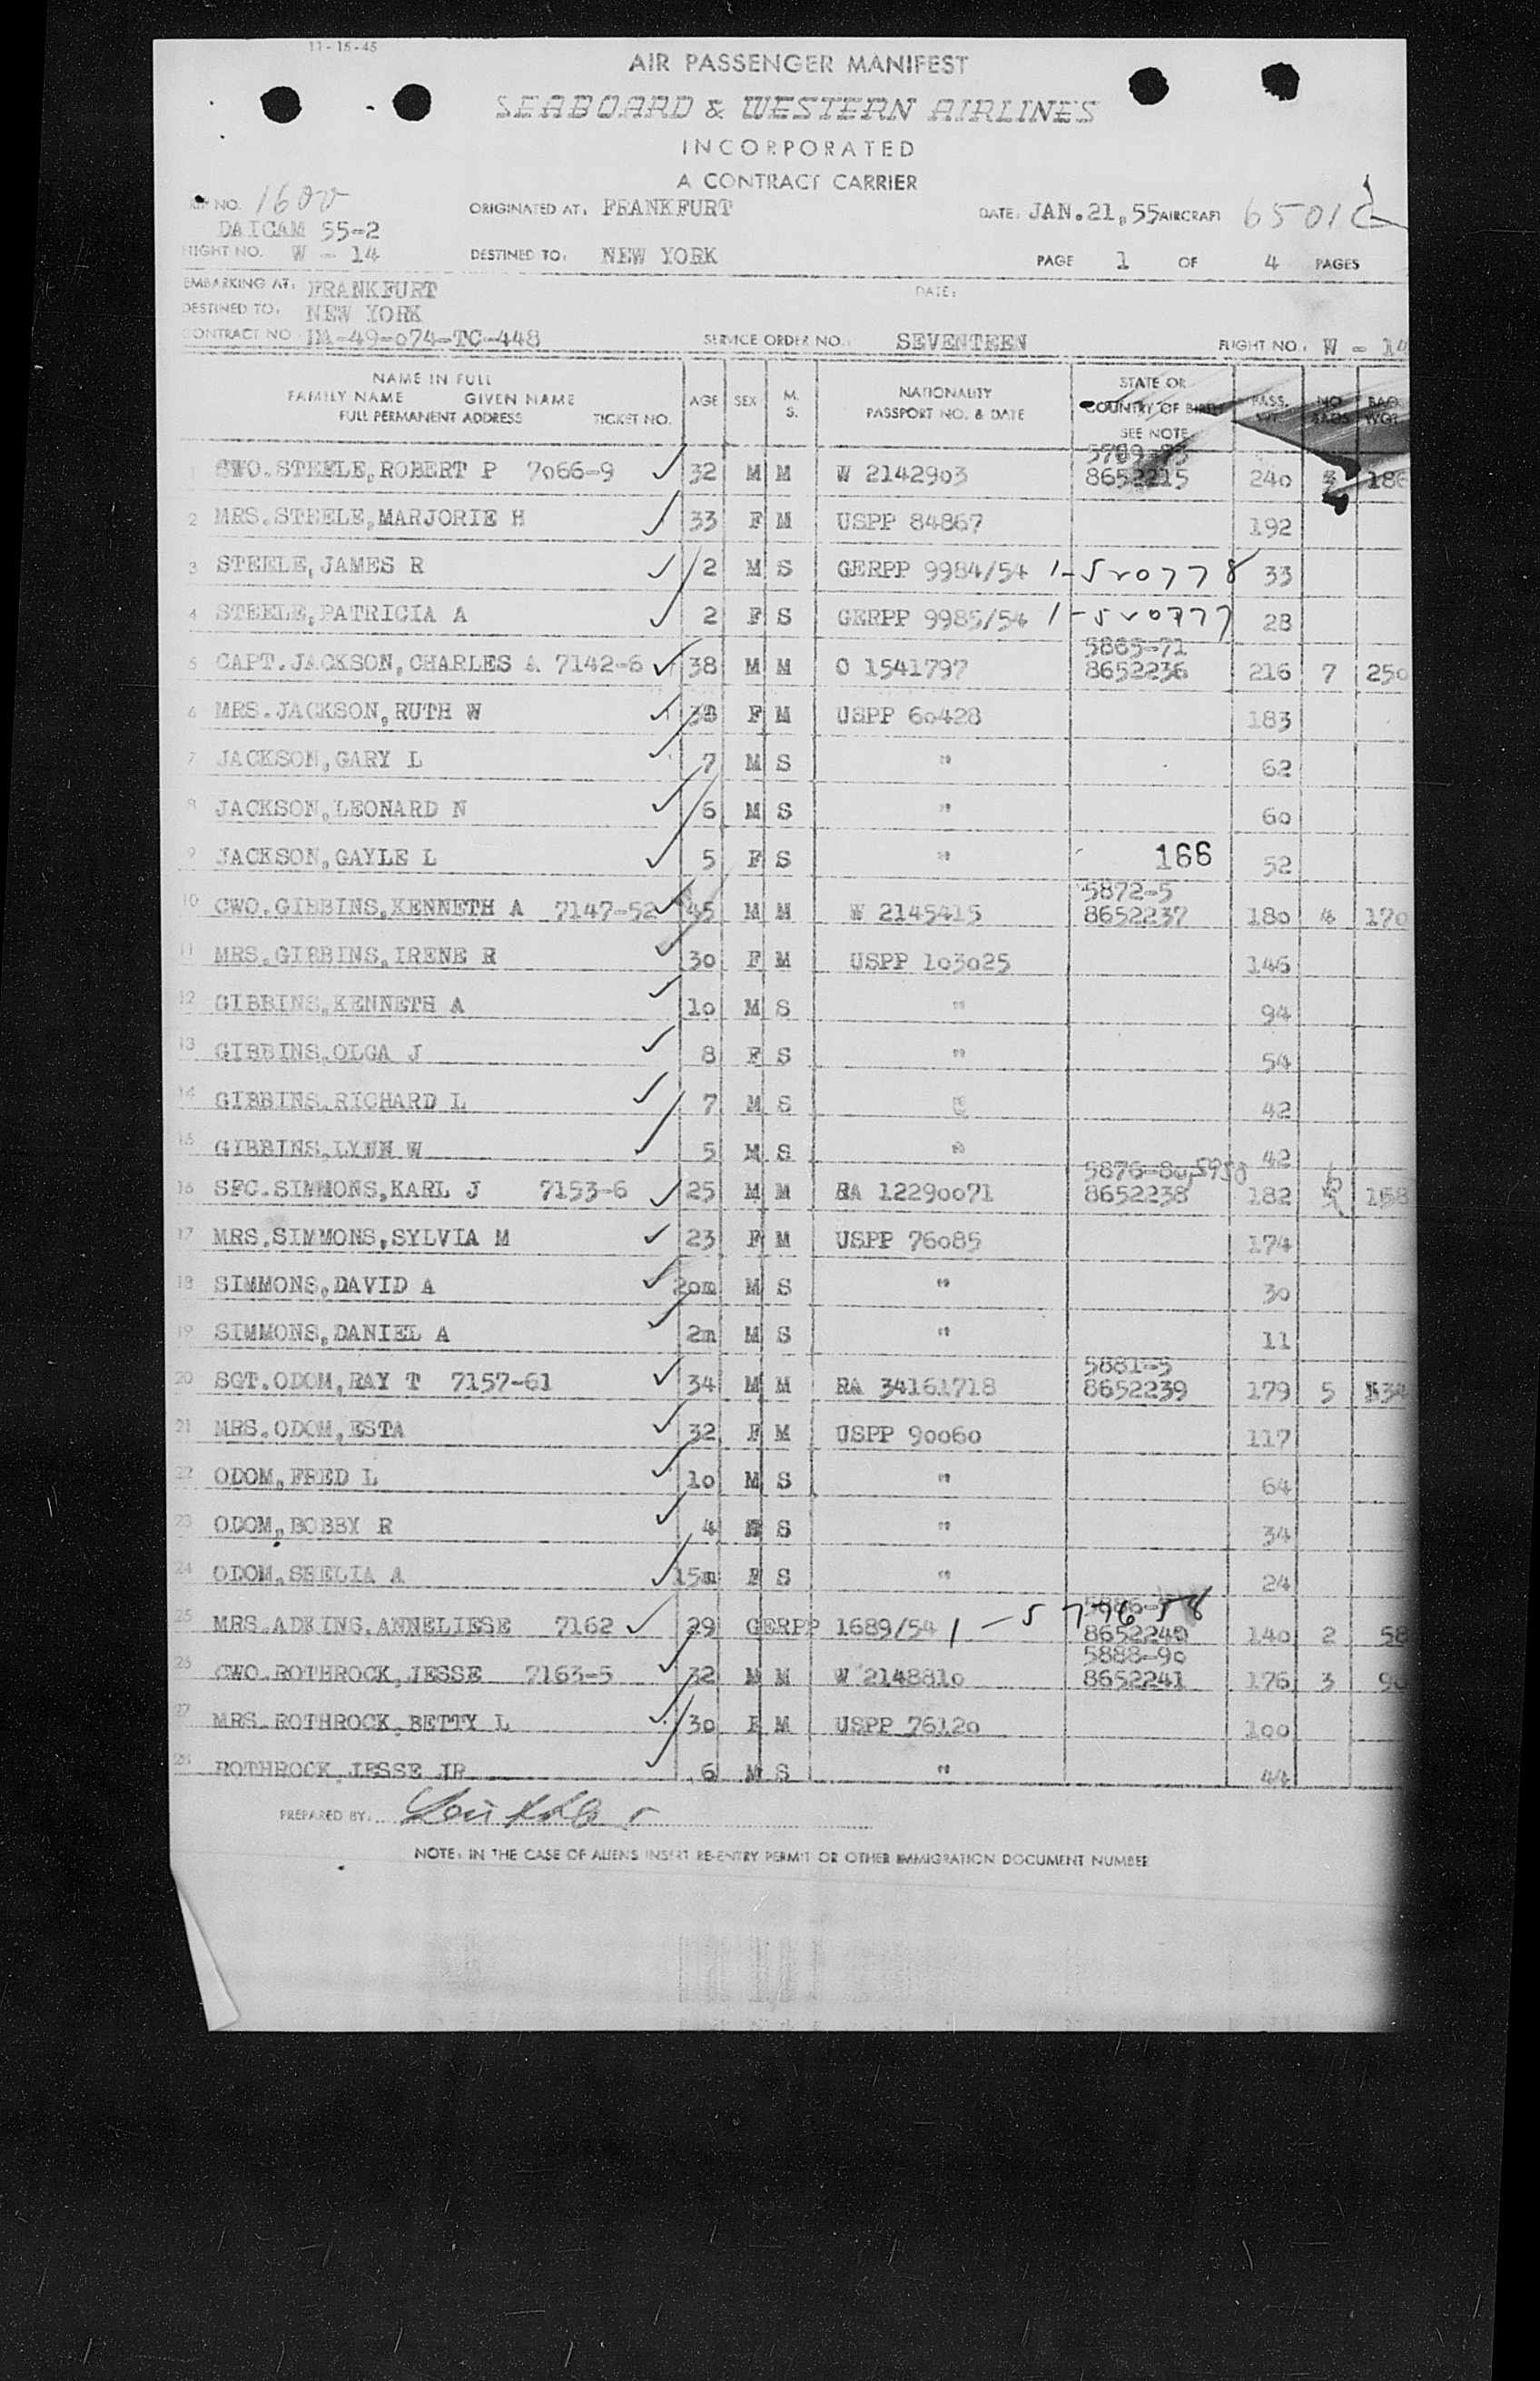 11-15-45
AIR PASSENGER MANIFEST
SEABOARD & WESTERN AIRLINES
INCORPORATED
A CONTRACT CARRIER
NO. 1600 ORIGINATED AT: FRANKFURT DATE: JAN.21,55 AIRCRAFT 6501C
DAICAM 55-2
FLIGHT NO. W - 14 DESTINED TO: NEW YORK PAGE 1 OF 4 PAGES
EMBARKING AT: FRANKFURT DATE:
DESTINED TO: NEW YORK
CONTRACT NO. DA-49-074-TC-448 SERVICE ORDER NO.: SEVENTEEN FLIGHT NO.: W - 14
NAME IN FULL
FAMILY NAME GIVEN NAME
FULL PERMANENT ADDRESS TICKET NO. AGE SEX M. S. NATIONALITY PASSPORT NO. & DATE STATE OR COUNTRY OF BIRTH SEE NOTE PASS. WT. NO. BAGS BAG. WGT.
1 CWO.STEELE,ROBERT P 7066-9 32 M M W 2142903 8652215 240 186
2 MRS.STEELE,MARJORIE H 33 F M USPP 84867 192
3 STEELE,JAMES R 2 M S GERPP 9984/54 1-520778 33
4 STEELE,PATRICIA A 2 F S GERPP 9985/54 1-520777 28
5865-71
5 CAPT.JACKSON,CHARLES A 7142-6 38 M M O 1541797 8652236 216 7 250
6 MRS.JACKSON,RUTH W 38 F M USPP 60428 183
7 JACKSON,GARY L 7 M S " 62
8 JACKSON,LEONARD N 6 M S " 60
9 JACKSON,GAYLE L 5 F S " 166 52
5872-5
10 CWO.GIBBINS,KENNETH A 7147-52 45 M M W 2145415 8652237 180 4 170
11 MRS.GIBBINS,IRENE R 30 F M USPP 103025 146
12 GIBBINS,KENNETH A 10 M S " 94
13 GIBBINS,OLGA J 8 F S " 54
14 GIBBINS,RICHARD L 7 M S " 42
15 GIBBINS,LYNN W 5 M S " 42
5876-80,5950
16 SFC.SIMMONS,KARL J 7153-6 25 M M RA 12290071 8652238 182 168
17 MRS.SIMMONS,SYLVIA M 23 F M USPP 76085 174
18 SIMMONS,DAVID A 20m M S " 30
19 SIMMONS,DANIEL A 2m M S " 11
5881-5
20 SGT.ODOM,RAY T 7157-61 34 M M RA 34161718 8652239 179 5 134
21 MRS.ODOM,ESTA 32 F M USPP 90060 117
22 ODOM,FRED L 10 M S " 64
23 ODOM,BOBBY R 4 M S " 34
24 ODOM,SHELIA A 15m F S " 24
25 MRS.ADKINS,ANNELIESE 7162 29 GERPP 1689/54 1-577658 8652240 140 2 58
5888-90
26 CWO.ROTHROCK,JESSE 7163-5 32 M M W 2148810 8652241 176 3 90
27 MRS.ROTHROCK,BETTY L 30 F M USPP 76120 100
28 ROTHROCK,JESSE JR 6 M S " 44
PREPARED BY:
NOTE: IN THE CASE OF ALIENS INSERT RE-ENTRY PERMIT OR OTHER IMMIGRATION DOCUMENT NUMBER